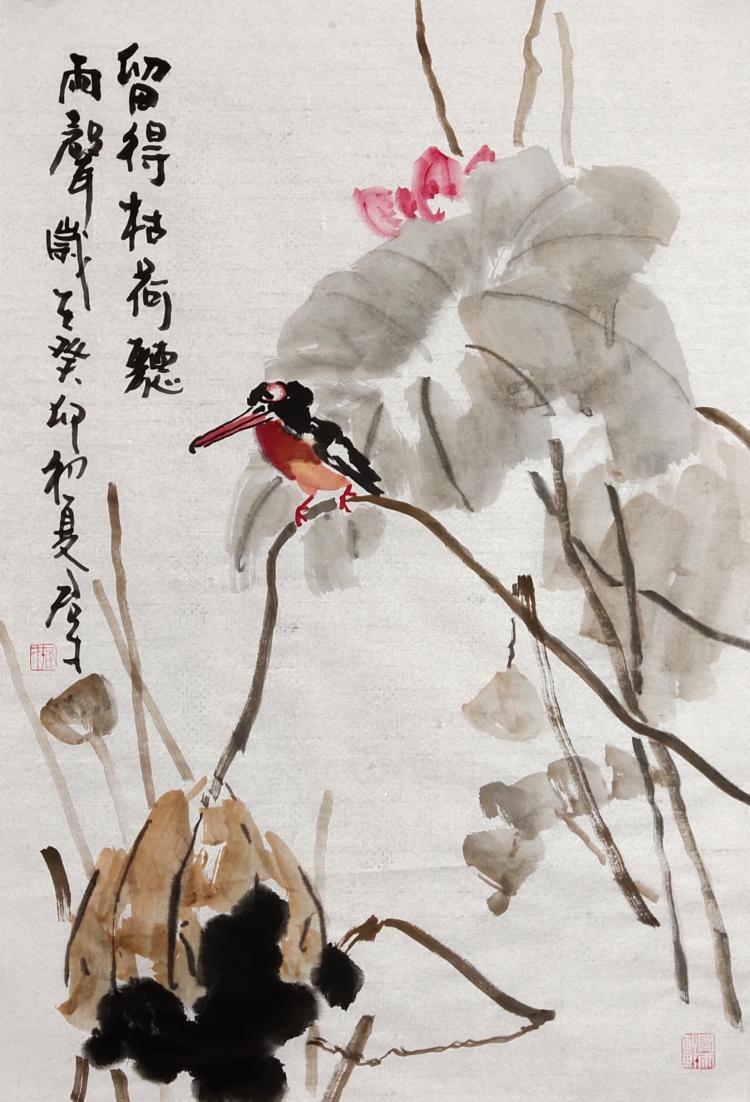 留得枯荷聽
雨聲歲在癸卯初夏